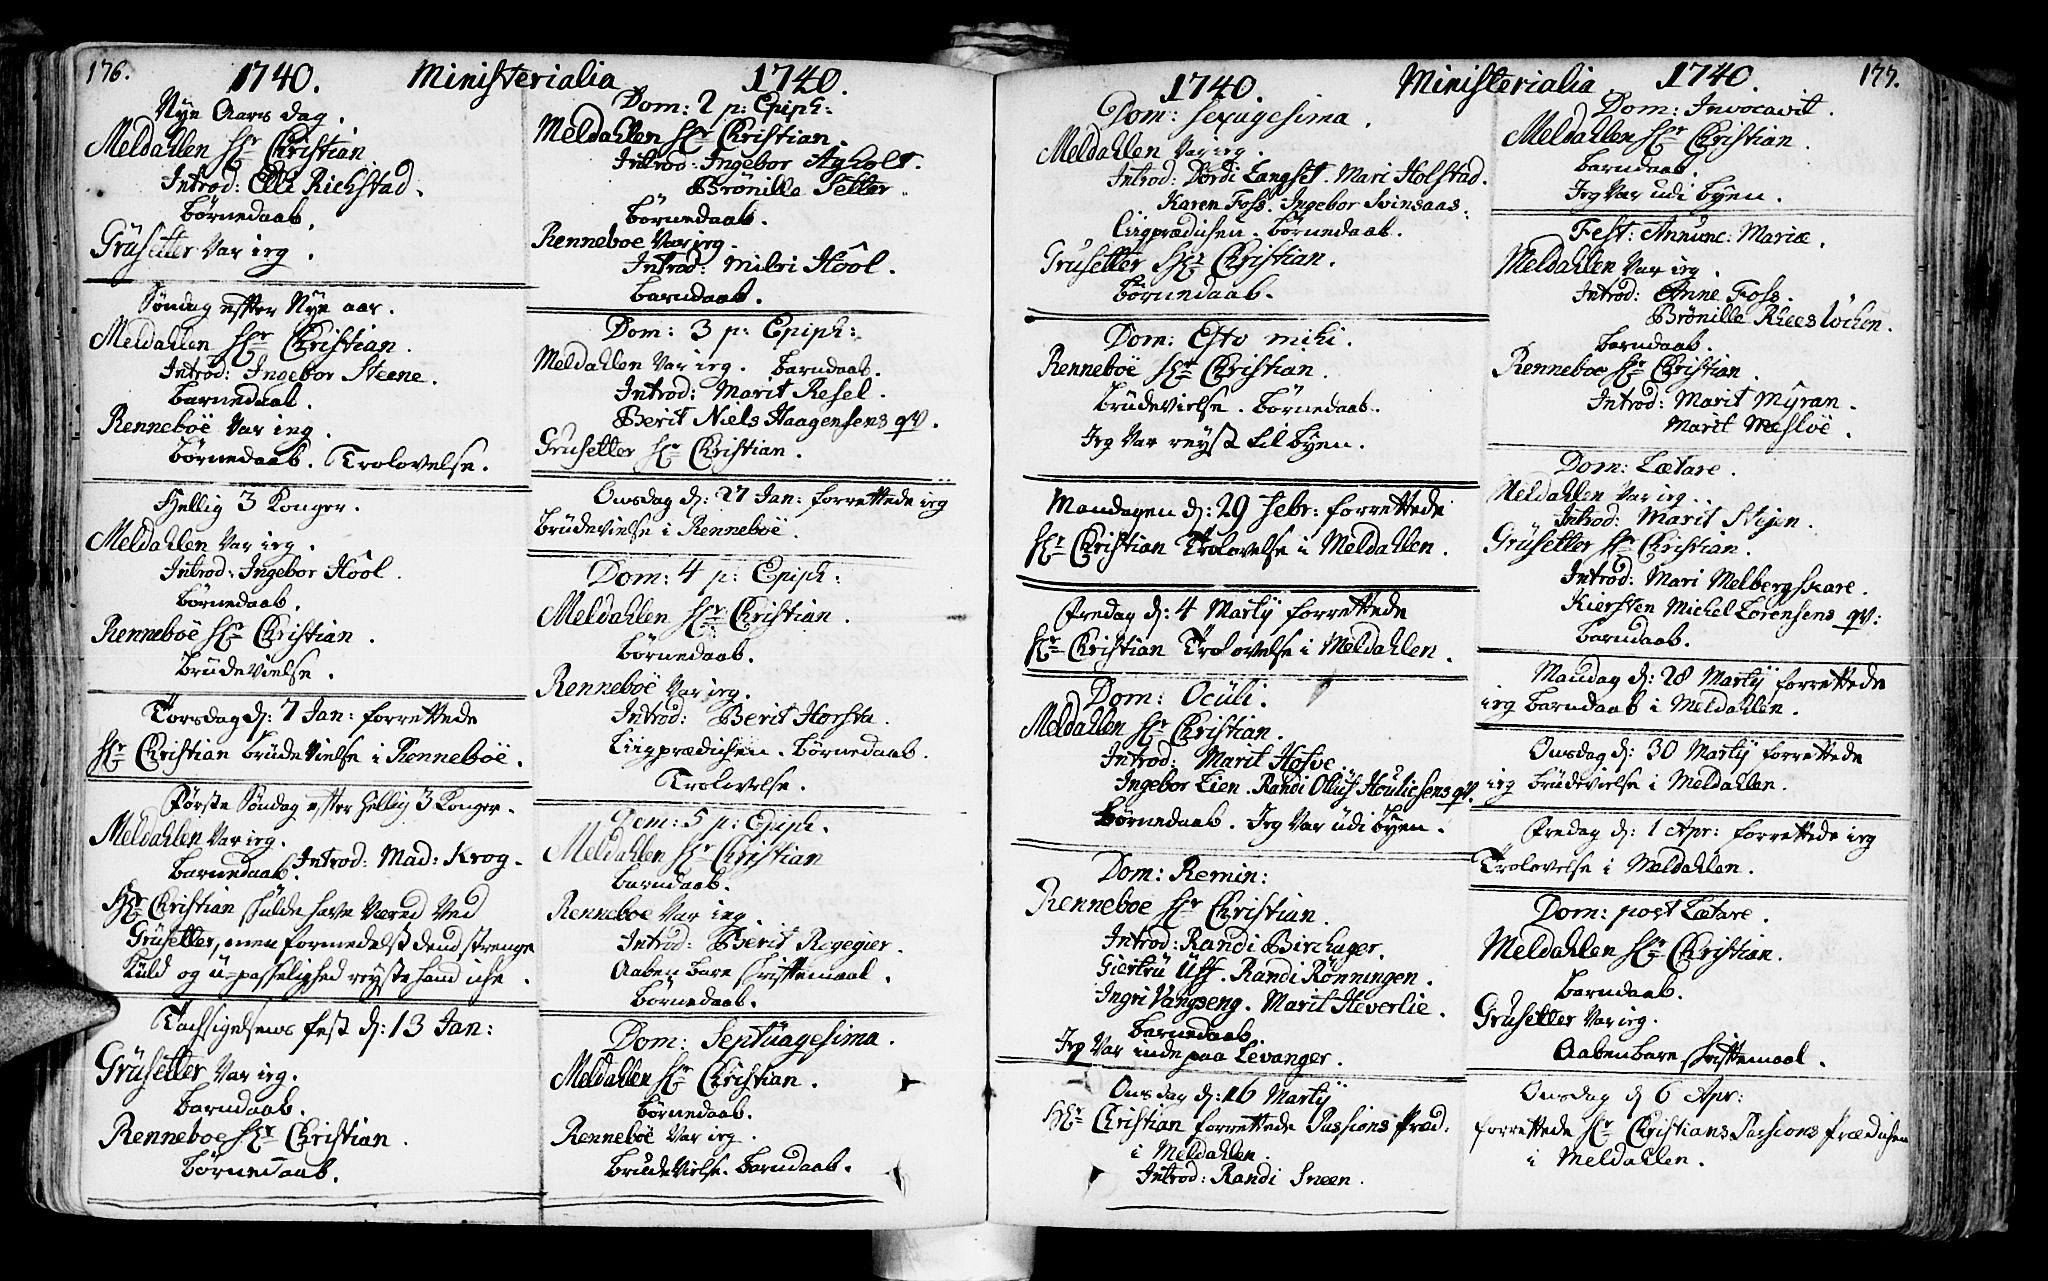 176.
1740. Ministerialia 1740.
Nye Aars dag.
Meldahlen Hr Christian
Introd: Elli Richstad.
börnedaab.
Grüsetter Var ieg.
Söndag efter Nye aar.
Meldahlen Hr Christian.
Introd: Ingebor Steene.
barnedaab.
Renneböe Var ieg.
börnedaab. Trolovelse.
Hellig 3 Konger.
Meldahlen Var ieg.
Introd: Ingebor Hool.
börnedaab.
Renneböe Hr Christian.
brüdevielse.
Torsdag d: 7 Jan: forrettede
Hr Christian brüdevielse i Renneböe.
Förste Söndag efter hellig 3 Konger.
Meldahlen Var ieg.
barnedaab. Introd: Mad: Krog.
Hr Christian skulde have Været Ved
Grüsetter, men formedelst dend strenge
Kuld og u-passelighed reyste hand iche.
Tachsigelsens fest d: 13 Jan:
Grüsetter Var ieg.
barndaab.
Renneboe Hr Christian.
börnedaab.
Dom: 2 p: Epiph:
Meldahlen Hr Christian.
Introd: Ingebor Agholt.
Brönilla Setter.
börnedaab.
Renneboe Var ieg.
Introd: Milri Hool.
barndaab.
Dom: 3 p: Epiph:
Meldahlen Var ieg. barndaab.
Introd: Marit Resel.
Berit Niels Haagensens qv.
Grusetter Hr Christian.
Onsdag d: 27 Jan: forrettede ieg
brüdevielse i Renneböe.
Dom: 4 p: Epiph:
Meldahlen Hr Christian.
börnedaab.
Renneböe Var ieg.
Introd: Berit Horsta.
Liigprædichen. börnedaab.
Trolovelse.
Dom: 5 p: Epiph.
Meldahlen Hr Christian
barndaab.
Renneboe Var ieg.
Introd: Berit Rogegier.
Aabenbare skriftemaal.
börnedaab.
Dom: Septuagesima.
Meldahlen Hr Christian.
börnedaab.
Renneböe Var ieg.
brudevielse. barndaab.
1740. Ministerialia 1740. 177.
Dom: Sexagesima.
Meldahlen Var ieg.
Introd: Dordi Langset. Mari Holstad.
Karen Foss. Ingebor Svinsaas.
Liigprædichen. börnedaab.
Grüsetter Hr Christian.
börnedaab.
Dom: Esto mihi.
Renneböe Hr Christian.
brüdevielse. börnedaab.
Jeg Var reyst til byen.
Mandagen d: 29 Febr: forrettede
Hr Christian Trolovelse i Meldahlen.
Fredag d: 4 Martij forrettede
Hr Christian Trolovelse i Meldahlen.
Dom: Oculi.
Meldahlen Hr Christian.
Introd: Marit Hofve.
Ingebor Lien. Randi Olluf Houliesens qv.
börnedaab. Jeg Var udi byen.
Dom: Remin:
Renneboe Hr Christian.
Introd: Randi Birchager.
Giertru Uff. Randi Rönningen.
Ingri Vangseng. Marit Heverlie.
barnedaab.
Jeg Var inde paa Levanger.
Onsdag d: 16 Martij
Hr Christian forrettede Passions Præd.
i Meldahlen.
Introd: Randi Sneen.
Dom: Invocavit.
Meldahlen Hr Christian.
barndaab.
Jeg Var udi byen.
Fest: Annunc: Mariæ.
Meldahlen Var ieg.
Introd: Anne Foss.
Brönille Rheeslöchen.
barndaab.
Renneboe Hr Christian.
Introd: Marit Myran.
Marit Mæslöe.
Dom: Lætare.
Meldahlen Var ieg.
Introd: Marit Stijen.
Grüsetter Hr Christian.
Introd: Mari Melbergskare.
Kiersten Michel Lorensens qv:
barndaab.
Mandag d: 28 Martij forrettede
ieg barndaab i Meldahlen.
Onsdag d: 30 Martij forrettede
ieg brüdevielse i Meldahlen.
Fredag d: 1 Apr: forrettede ieg
Trolovelse i Meldahlen.
Dom: post Lætare.
Meldahlen Hr Christian.
barndaab.
Grüsetter Var ieg.
Aabenbare skriftemaal.
Onsdag d 6 Apr:
forrettede Hr Christians Passions Prædichen
i Meldahlen.